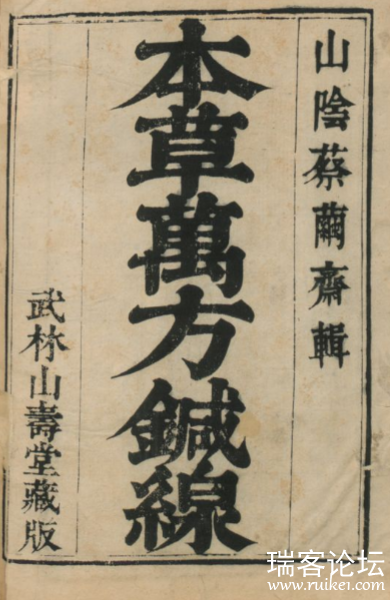 山陰蔡繭齋輯
本草萬方鍼線
武林山壽堂藏版
瑞客论坛
www.ruikei.com